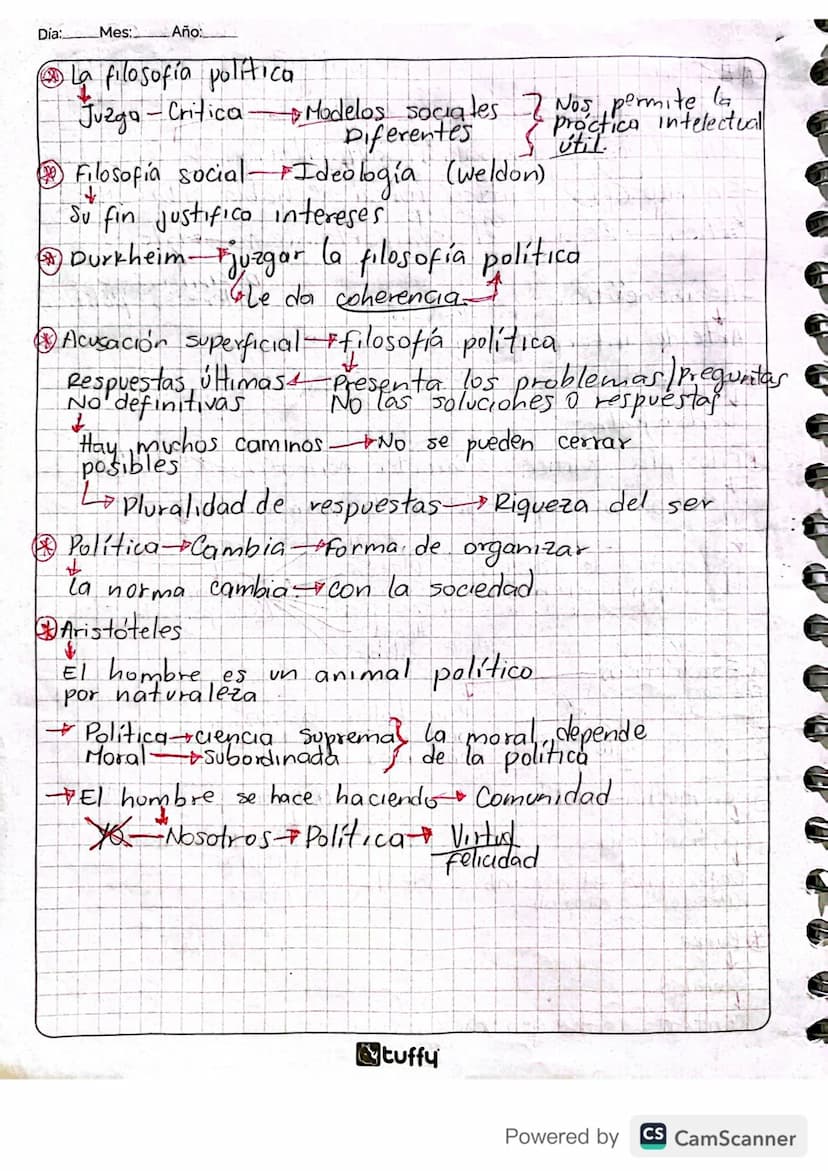 Día: Mes: Año:
La filosofía política
Juzga - Critica → Modelos sociales Diferentes } Nos permite la práctica intelectual útil.
Filosofía social → Ideología (Weldon)
Su fin justifica intereses
Durkheim → juzgar la filosofía política
Le da coherencia
Acusación superficial → filosofía política
Respuestas últimas ← Presenta los problemas/preguntas
No definitivas No las soluciones o respuestas
Hay muchos caminos → No se pueden cerrar
posibles
↳ Pluralidad de respuestas → Riqueza del ser
Política → Cambia → forma de organizar
la norma cambia → con la sociedad
Aristóteles
El hombre es un animal político
por naturaleza
→ Política → ciencia suprema } la moral depende
Moral → Subordinada } de la política
→ El hombre se hace haciendo → Comunidad
Yo — Nosotros → Política → Virtud
felicidad
tuffy
Powered by CS CamScanner